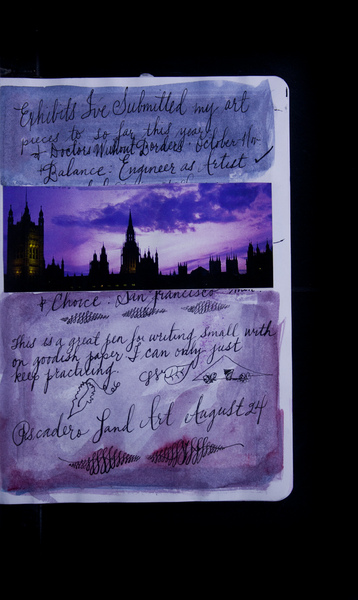 Exhibits I've Submitted my art
pieces to so far this year
+ Doctors Without Borders · October 11th
+ Balance: Engineer as Artist ✓
+ Choice · San Francisco
This is a great pen for writing small with
on goodish paper I can only just
keep practicing.
Pescadero Land Art August 24